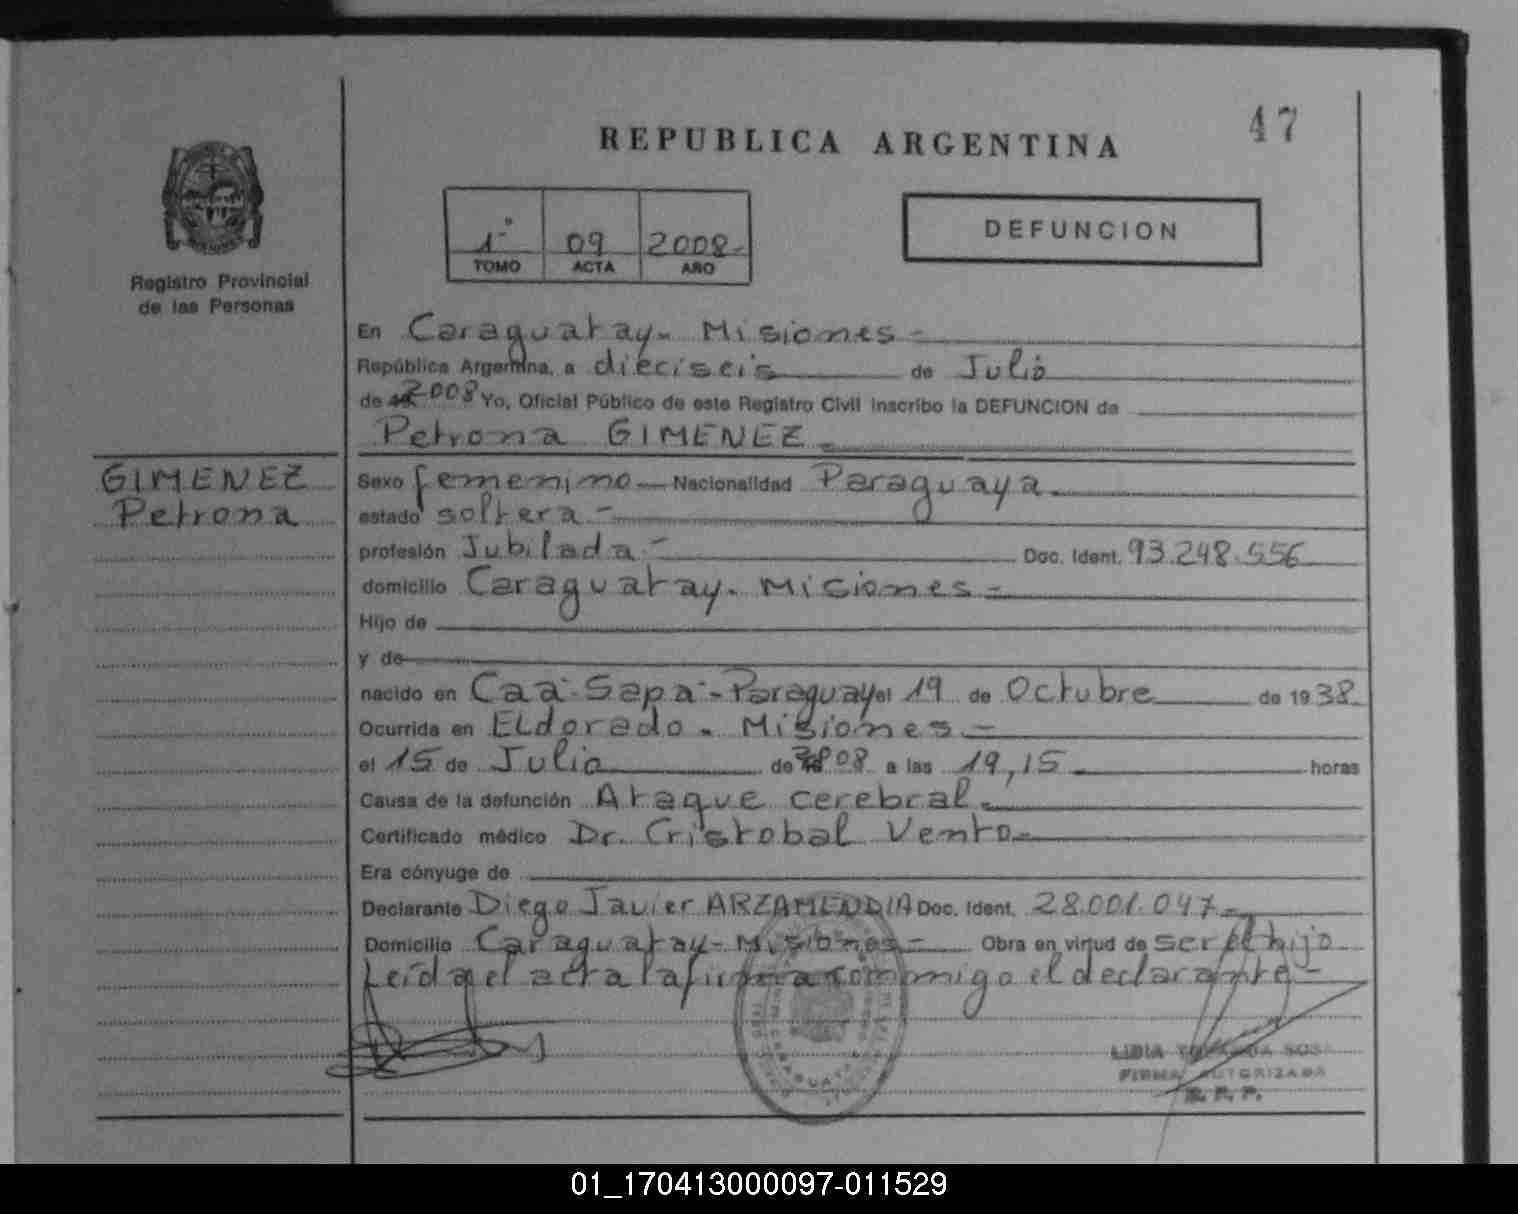 47
REPUBLICA ARGENTINA
Registro Provincial
de las Personas
1º 09 2008-
TOMO ACTA AÑO
DEFUNCION
En Caraguatay- Misiones-
República Argentina, a dieciseis de Julio
de 2008 Yo, Oficial Público de este Registro Civil inscribo la DEFUNCION de
Petrona GIMENEZ
GIMENEZ
Petrona
Sexo femenino Nacionalidad Paraguaya
estado soltera-
profesión Jubilada- Doc. Ident. 93.248.556
domicilio Caraguatay. Misiones-
Hijo de
y de
nacido en Caa-Sapa-Paraguay el 19 de Octubre de 1938
Ocurrida en ELdorado. Misiones-
el 15 de Julio de 2008 a las 19,15 horas
Causa de la defunción Ataque cerebral.
Certificado médico Dr. Cristobal Vento-
Era cónyuge de
Declarante Diego Javier ARZAMENDIA Doc. Ident. 28.001.047-
Domicilio Caraguatay- Misiones- Obra en virtud de ser el hijo
Leída el acta la firma conmigo el declarante-
LIDIA SOSA
FIRMA AUTORIZADA
R. P. P.
01_170413000097-011529